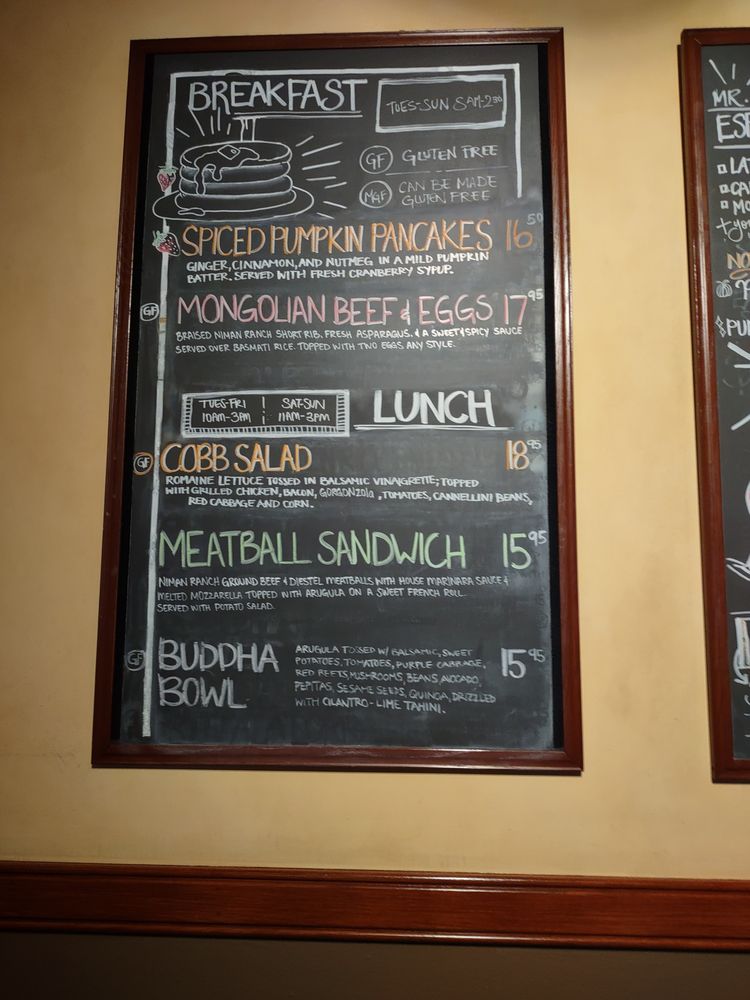 BREAKFAST
TUES-SUN 8AM-2:30
GF GLUTEN FREE
MGF CAN BE MADE
GLUTEN FREE
SPICED PUMPKIN PANCAKES 16 50
GINGER, CINNAMON, AND NUTMEG IN A MILD PUMPKIN
BATTER. SERVED WITH FRESH CRANBERRY SYRUP.
GF MONGOLIAN BEEF & EGGS 17 95
BRAISED NIMAN RANCH SHORT RIB, FRESH ASPARAGUS, & A SWEET & SPICY SAUCE
SERVED OVER BASMATI RICE. TOPPED WITH TWO EGGS ANY STYLE.
TUES-FRI | SAT-SUN
10AM-3PM | 11AM-3PM
LUNCH
GF COBB SALAD 18 95
ROMAINE LETTUCE TOSSED IN BALSAMIC VINAIGRETTE; TOPPED
WITH GRILLED CHICKEN, BACON, GORGONZOLA, TOMATOES, CANNELLINI BEANS,
RED CABBAGE AND CORN.
MEATBALL SANDWICH 15 95
NIMAN RANCH GROUND BEEF & DIESTEL MEATBALLS WITH HOUSE MARINARA SAUCE &
MELTED MOZZARELLA TOPPED WITH ARUGULA ON A SWEET FRENCH ROLL.
SERVED WITH POTATO SALAD.
GF BUDDHA
BOWL
ARUGULA TOSSED W/ BALSAMIC, SWEET
POTATOES, TOMATOES, PURPLE CABBAGE,
RED BEETS, MUSHROOMS, BEANS, AVOCADO,
PEPITAS, SESAME SEEDS, QUINOA, DRIZZLED
WITH CILANTRO-LIME TAHINI.
15 95
MR.